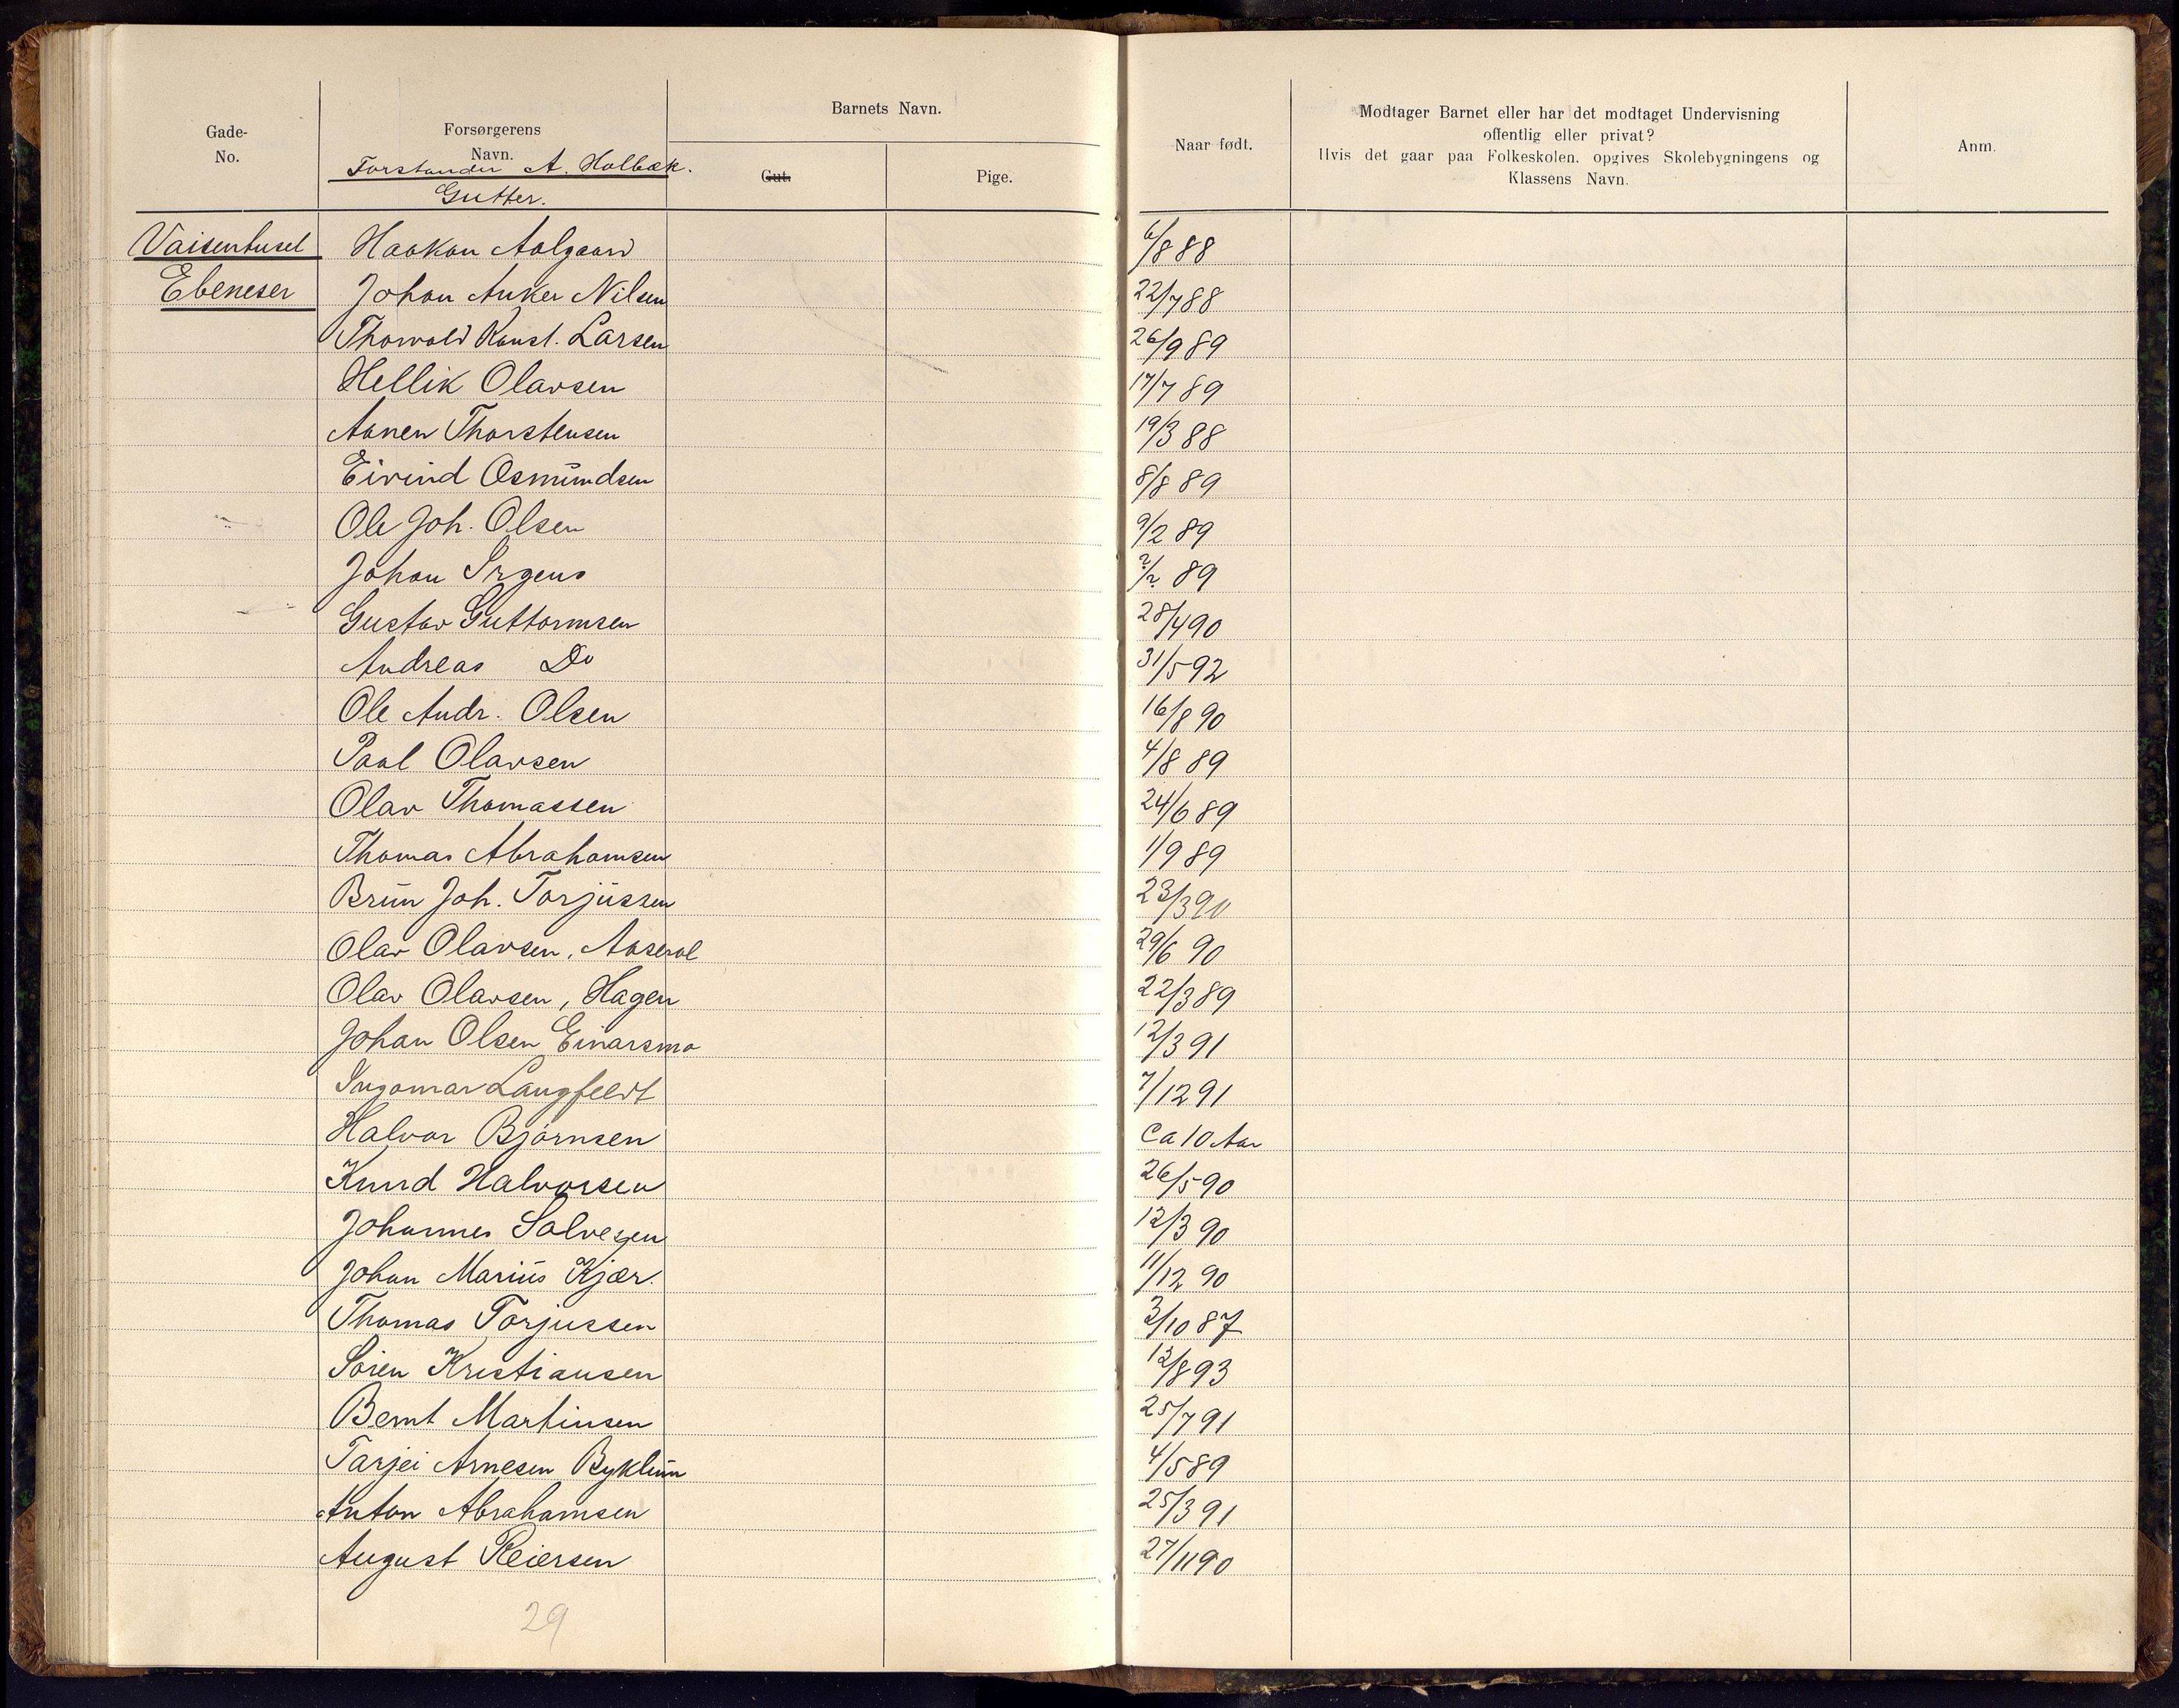 Gade-
No.
Forsørgerens
Navn.
Forstander A. Holbæk.
Gutter.
Barnets Navn.
Gut.
Pige.
Naar født.
Modtager Barnet eller har det modtaget Undervisning
offentlig eller privat?
Hvis det gaar paa Folkeskolen, opgives Skolebygningens og
Klassens Navn.
Anm.
Vaisenhuset Haakon Aalgaard 6/8 88
Ebeneser Johan Anker Nilsen 22/7 88
Thorvald Konst. Larsen 26/9 89
Hellik Olavsen 17/7 89
Aanen Thorstensen 19/3 88
Eivind Osmundsen 8/8 89
Ole Joh. Olsen 9/2 89
Johan Irgens ?/? 89
Gustav Guttormsen 28/4 90
Andreas Do 31/5 92
Ole Andr. Olsen 16/8 90
Paal Olavsen 4/8 89
Olav Thomassen 24/6 89
Thomas Abrahamsen 1/9 89
Brun Joh. Torjussen 23/3 90
Olav Olavsen, Aaseral 29/6 90
Olav Olavsen, Hagen 22/3 89
Johan Olsen Einarsmo 12/3 91
Ingomar Langfeldt 7/12 91
Halvor Bjørnsen Ca 10 Aar
Knud Halvorsen 26/5 90
Johannes Salvesen 12/3 90
Johan Marius Kjær. 11/12 90
Thomas Torjussen 3/10 87
Søren Kristiansen 12/8 93
Bernt Martinsen 25/7 91
Tarjei Arnesen Byklum 4/5 89
Anton Abrahamsen 25/3 91
August Reiersen 27/11 90
29